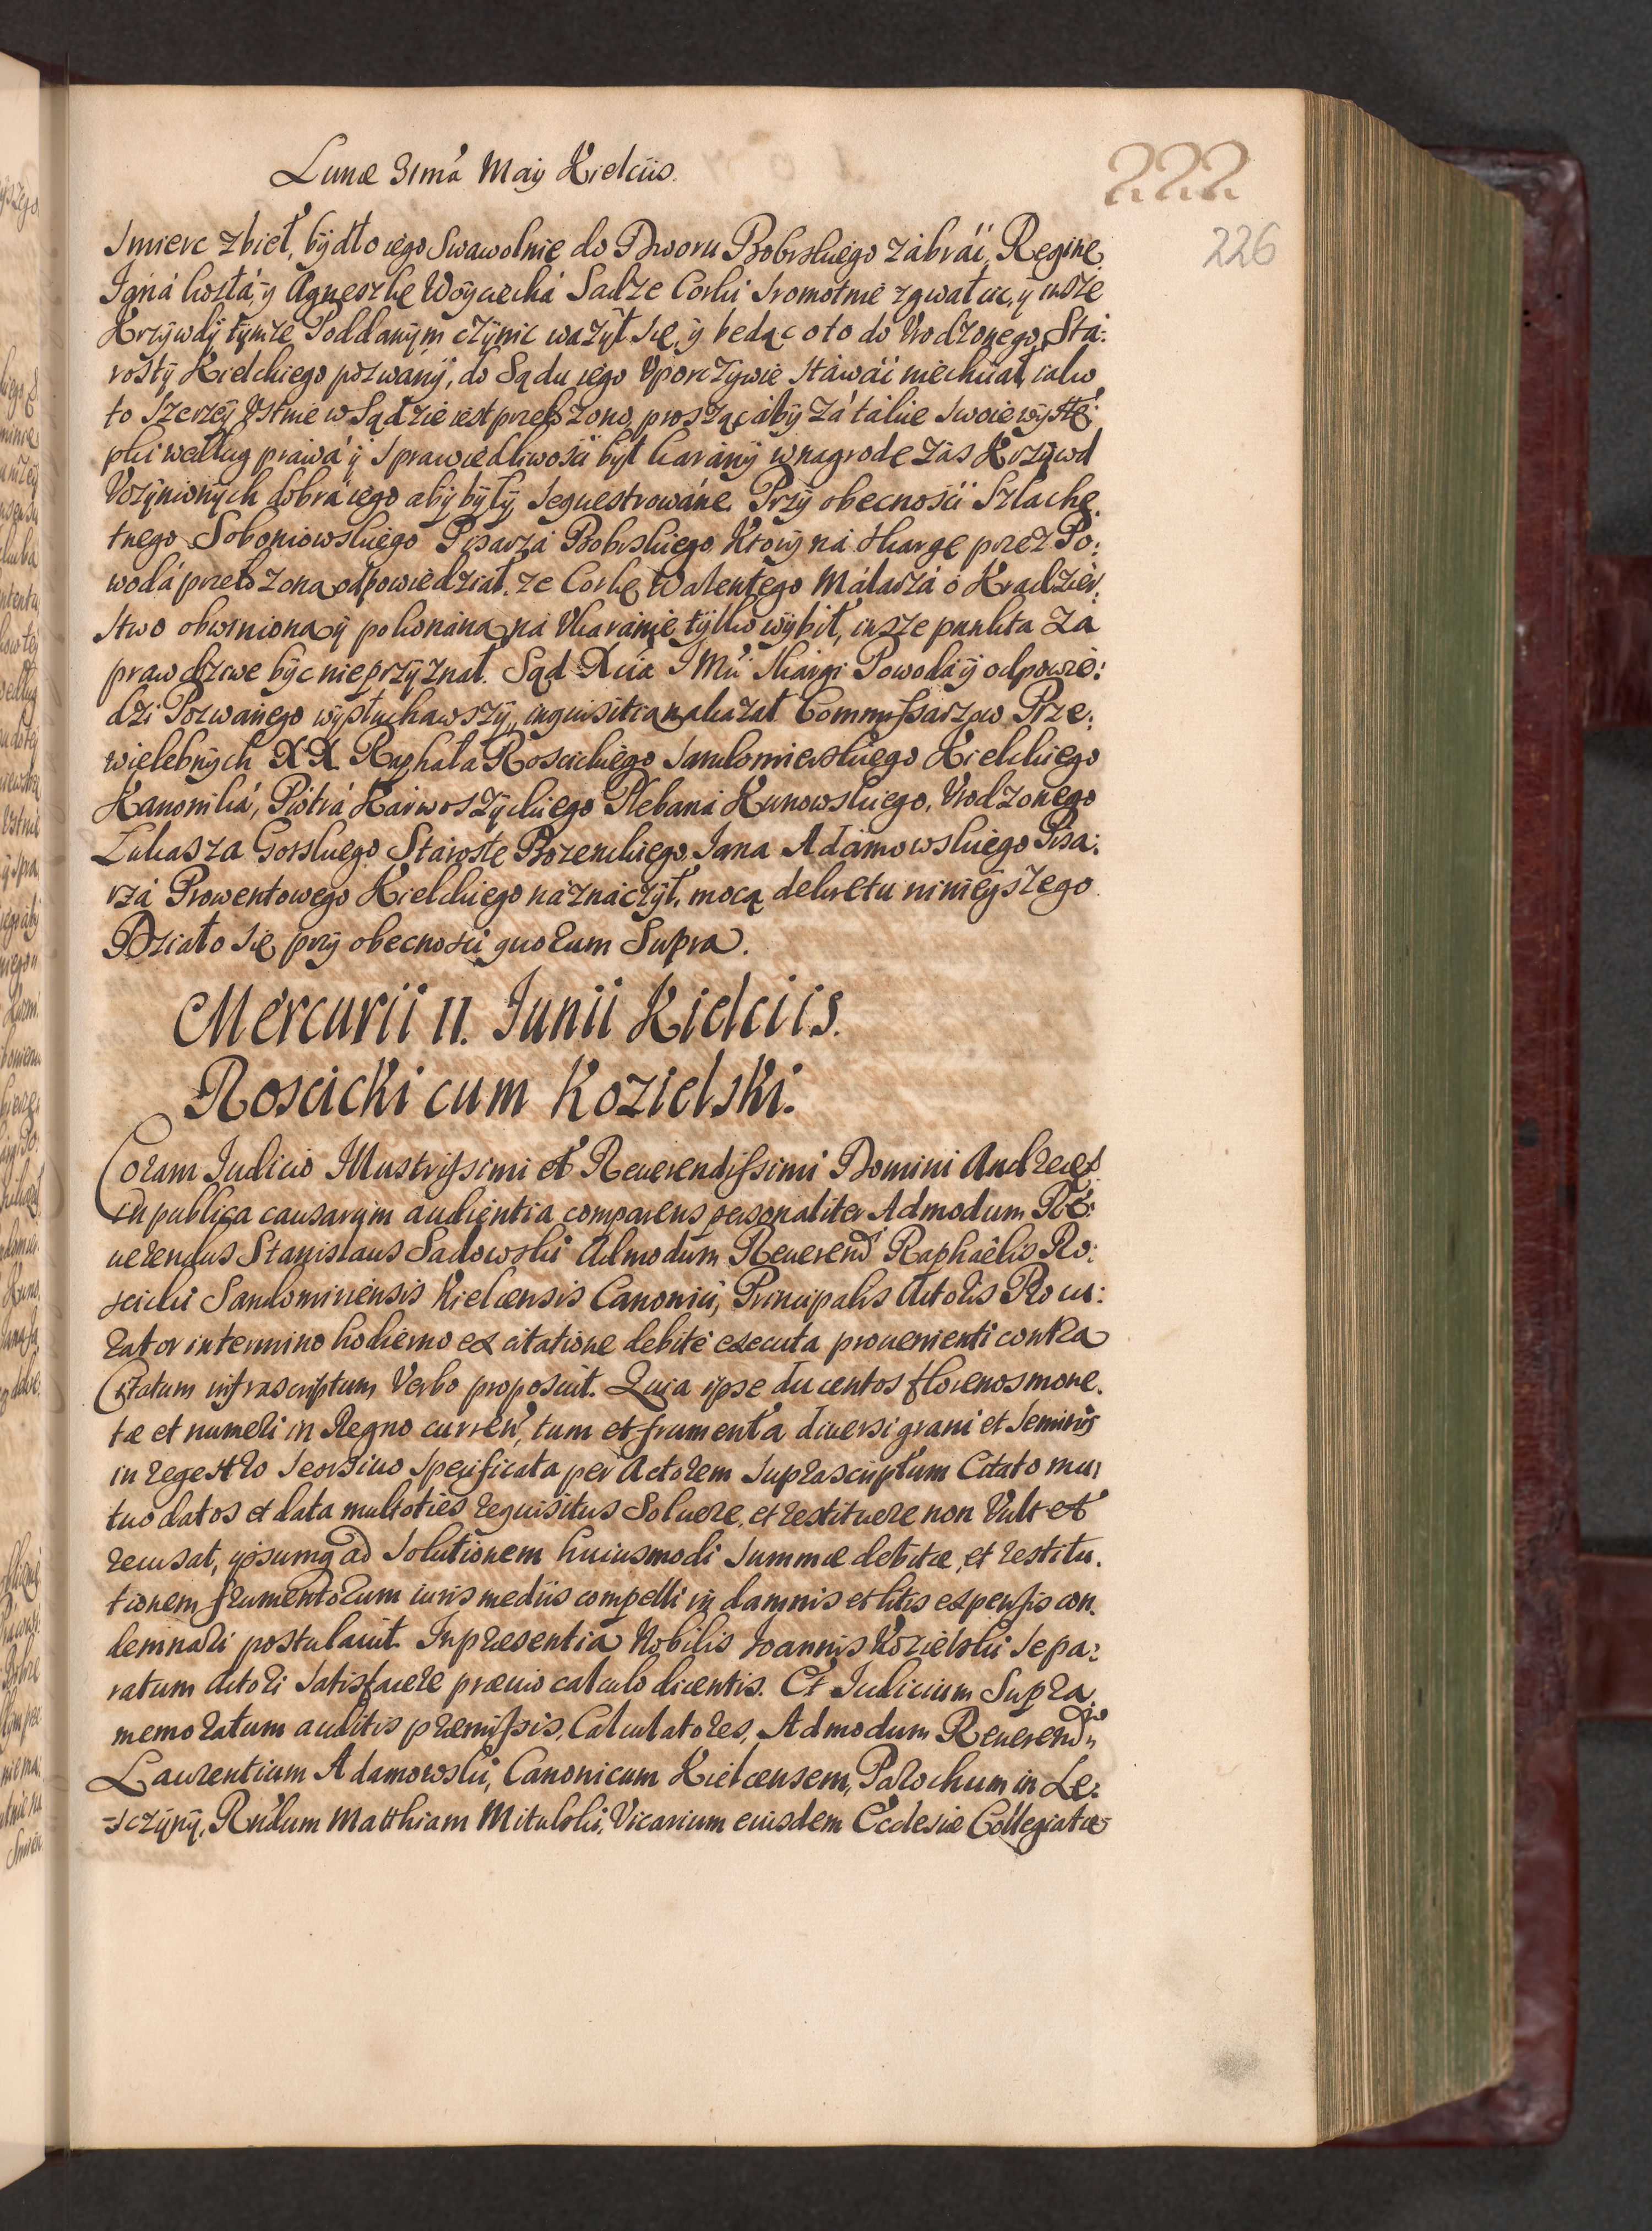 Lunæ 31má Maÿ Kielciis.
222
226
Smierc zbieł, bÿdło iego Swawolnie do Dworu Bobrskiego zábrái, Reginę
Jgná kostá, ÿ Agnęszkę Woÿciechá Sadze Corki Sromotnie zgwałcic, ÿ insze
Krzÿwdÿ tÿmze Poddanÿm czÿnic wazÿł się, ÿ będąc oto do Vrodzonego Stá:
rostÿ Kielckiego pozwanÿ, do Sądu iego Vporczÿwie stáwái niechciał, iako
to szerzeÿ Vstnie w Sądzie iest przełozono, prosząc ábÿ zá tákie swoie wÿstę:
pki według práwá ÿ Sprawiedliwości bÿł karánÿ w nagrodę zás Krzÿwd
Vczÿnionÿch dobrá iego abÿ bÿłÿ Sequestrowáne. Przÿ obecnośći Szlache.
tnego Soboniowskiego Pisarzá Bobrskiego. Ktorÿ ná skargę przez Po:
wodá przełozoną odpowiedział. ze Corkę Walentego Málarzá o Kradzież:
stwo obwinioną ÿ pokonáną ná Vkaránie tÿlko wÿbił, insze punkta za
prawdziwe bÿc nieprzÿznał. Sąd Xcia JMći Skargi Powodá ÿ odpowie:
dzi Pozwánego wÿsłuchawszÿ, inquisitią nakazał Commissarzow Prze:
wielebnÿch XX. Raphała Roscickiego Sandomierskiego Kielckiego
Kanoniká, Piotrá Kárwoszÿckiego Plebaná Kunowskiego, Vrodzonego
Łukasza Gorskiego Stárostę Bozenckiego, Jana Adámowskiego Pisa:
rzá Prowentowego Kielckiego náznáczÿł, mocą dekretu ninieÿszego.
Działo się prÿ obecnosci quorum Supra.
Mercurii 11. Junii Kielciis.
Roscicki cum Kozielski.
Coram Judicio Illustrissimi et Reuerendissimi Domini Andreæ
in publica causarum audientia comparens personaliter Admodum Re:
uerendus Stanislaus Sadowski Admodum Reuerend Raphaelis Ro:
scicki Sandomiriensis Kielcensis Canonici, Principalis Actoris Procu:
rator in termino hodierno ex citatione debite executa prouenienti contra
Citatum infrascriptum Verbo proposuit. Quia ipse ducentos florenos mone.
tæ et numeri in Regno curren, tum et frumenta diuersi grani et seminis
in regestro seorsiuo specificata per Actorem suprascriptum Citato mu,
tuo datos et data multoties requisitus Soluere, et restituere non Vult et
recusat, ipsumq ad solutionem huiusmodi summæ debitæ, et restitu.
tionem frumentorum iuris mediis compelli in damnis et litis expensis con.
demnari postulauit. In præsentia Nobilis Joannis Kozielski se pa:
ratum Actori satisfacere præuio calculo dicentis. Et Judicium Supra.
memoratum auditis præmissis, Calculatores, Admodum Reuerendu
Laurentium Adamowski, Canonicum Kielcensem, Parochum in Le:
-sczÿnÿ, Rndum Matthiam Mitulski, Vicarium eiusdem Ecclesiæ Collegiatæ